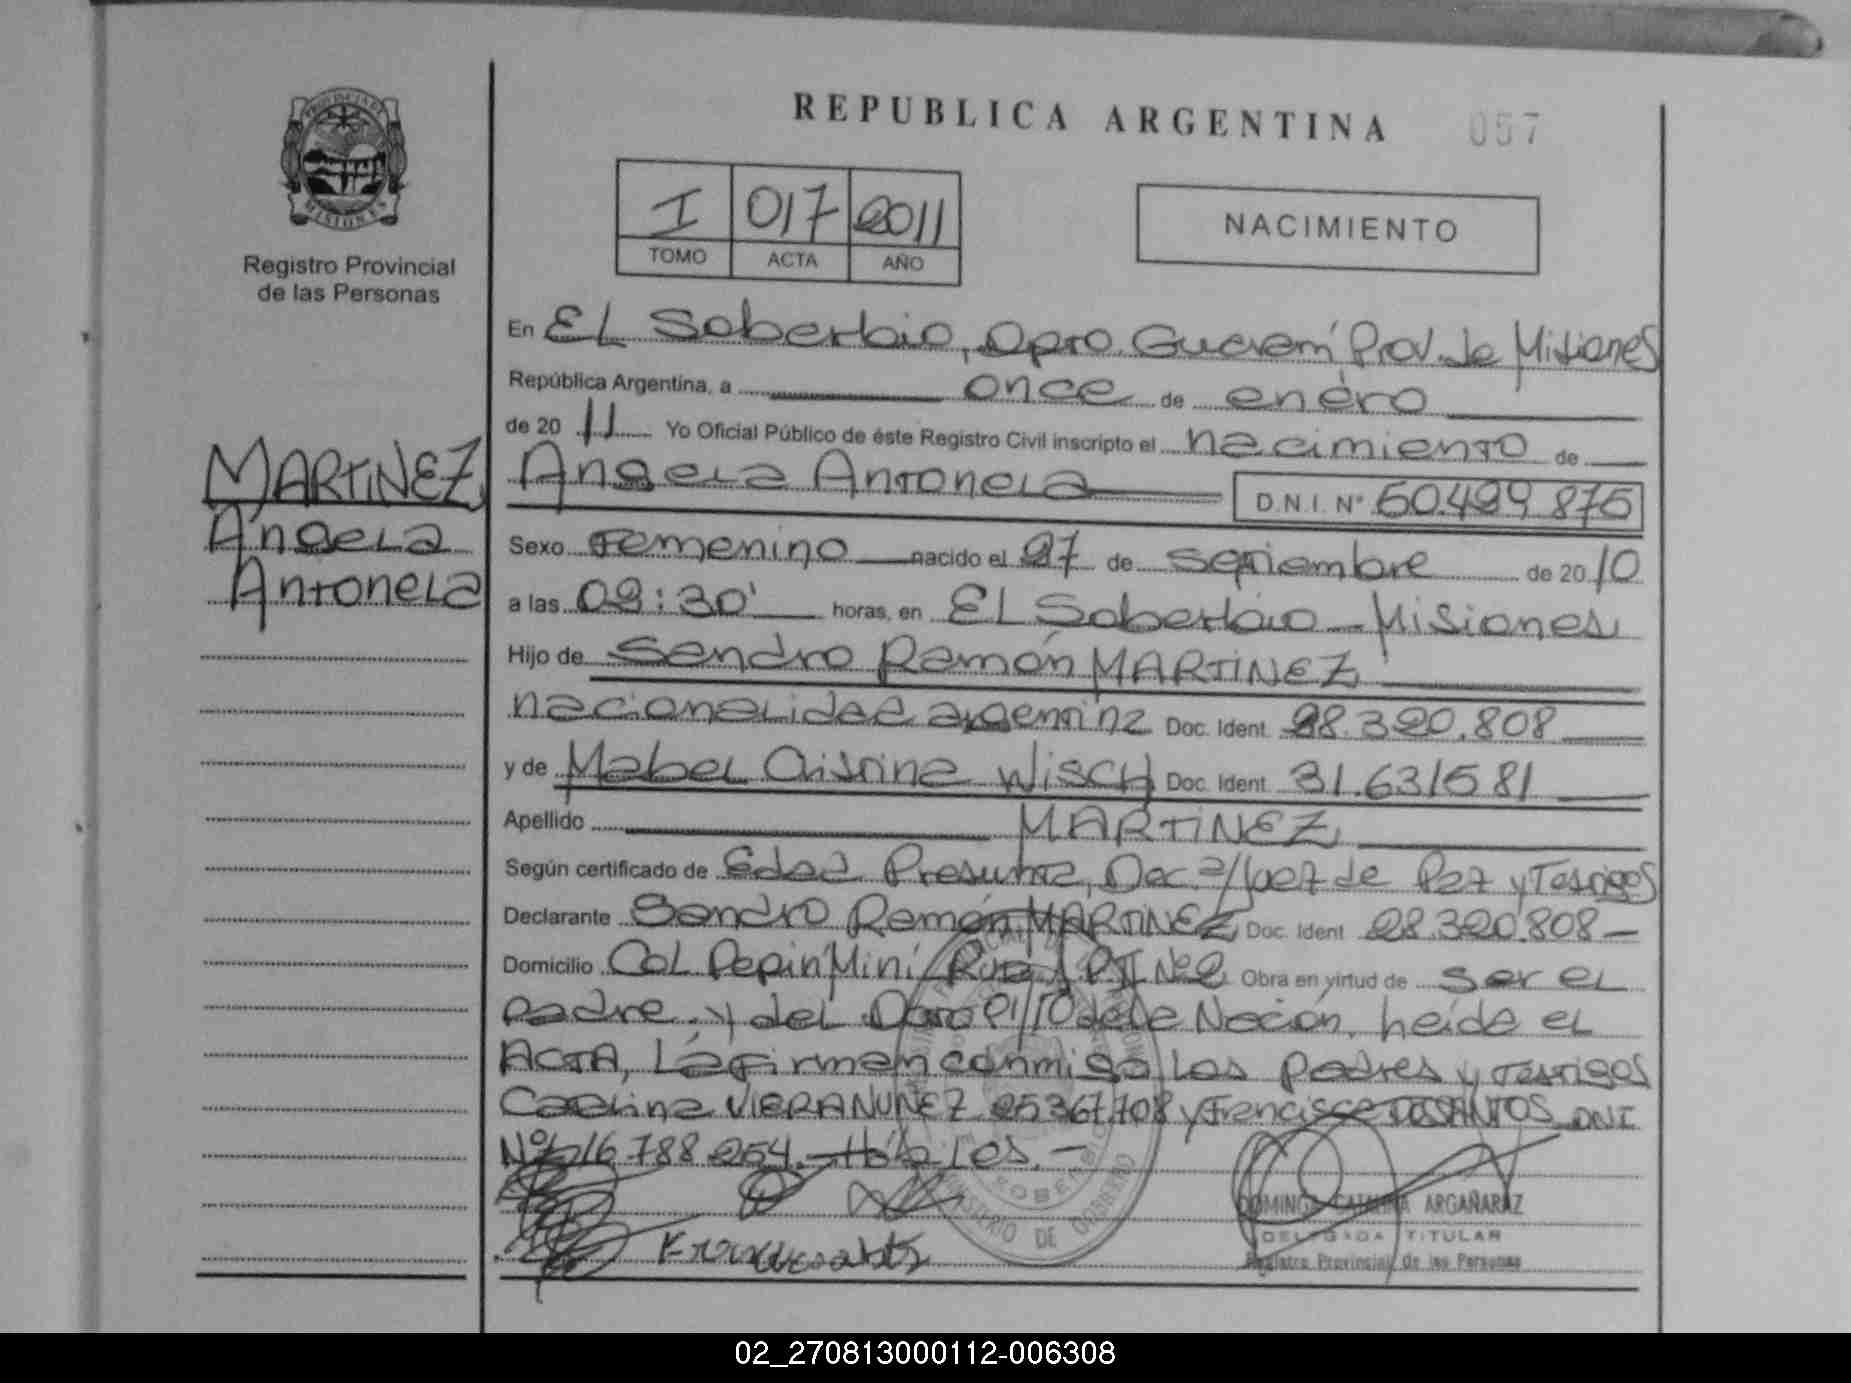 REPUBLICA ARGENTINA
057
PROVINCIA DE
MISIONES
Registro Provincial
de las Personas
I 017 2011
TOMO ACTA AÑO
NACIMIENTO
En EL Soberbio, Dpto. Guaraní Prov. de Misiones
República Argentina, a once de enero
de 20 11 Yo Oficial Público de éste Registro Civil inscripto el nacimiento de
MARTINEZ
Angela
Antonela
Angela Antonela D.N.I. Nº 50.499.875
Sexo Femenino nacido el 27 de septiembre de 20 10
a las 09:30' horas, en EL Soberbio - Misiones
Hijo de Sandro Ramón MARTINEZ
nacionalidad argentina Doc. Ident. 28.320.808
y de Mabel Cristina WISCH Doc. Ident. 31.631581
Apellido MARTINEZ
Según certificado de Edad Presunta, Doc. Juez de Paz y Testigos
Declarante Sandro Ramón MARTINEZ Doc. Ident. 28.320.808 -
Domicilio Col. Pepirí Miní / Ruta PJI Nº 2 Obra en virtud de ser el
padre, y del la Nación, leída el
ACTA, La firman conmigo los padres y testigos
Catalina VIERA NUÑEZ 25367.708 y Francisco DOSSANTOS DNI
Nº 16.788.254.
MINISTERIO DE GOBIERNO
DOMINGA CATALINA ARGAÑARAZ
DELEGADA TITULAR
Registro Provincial de las Personas
02_270813000112-006308